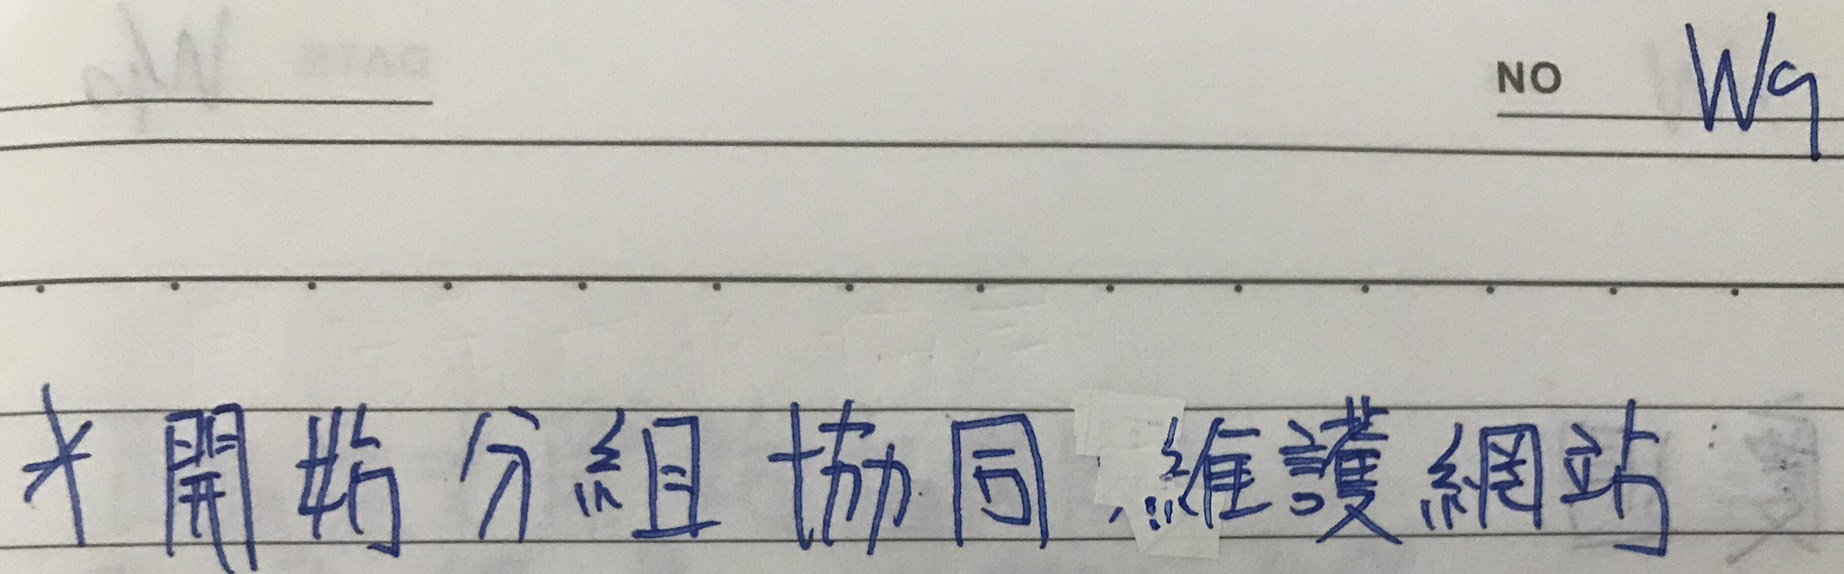 NO W9
*開始分組協同維護網站